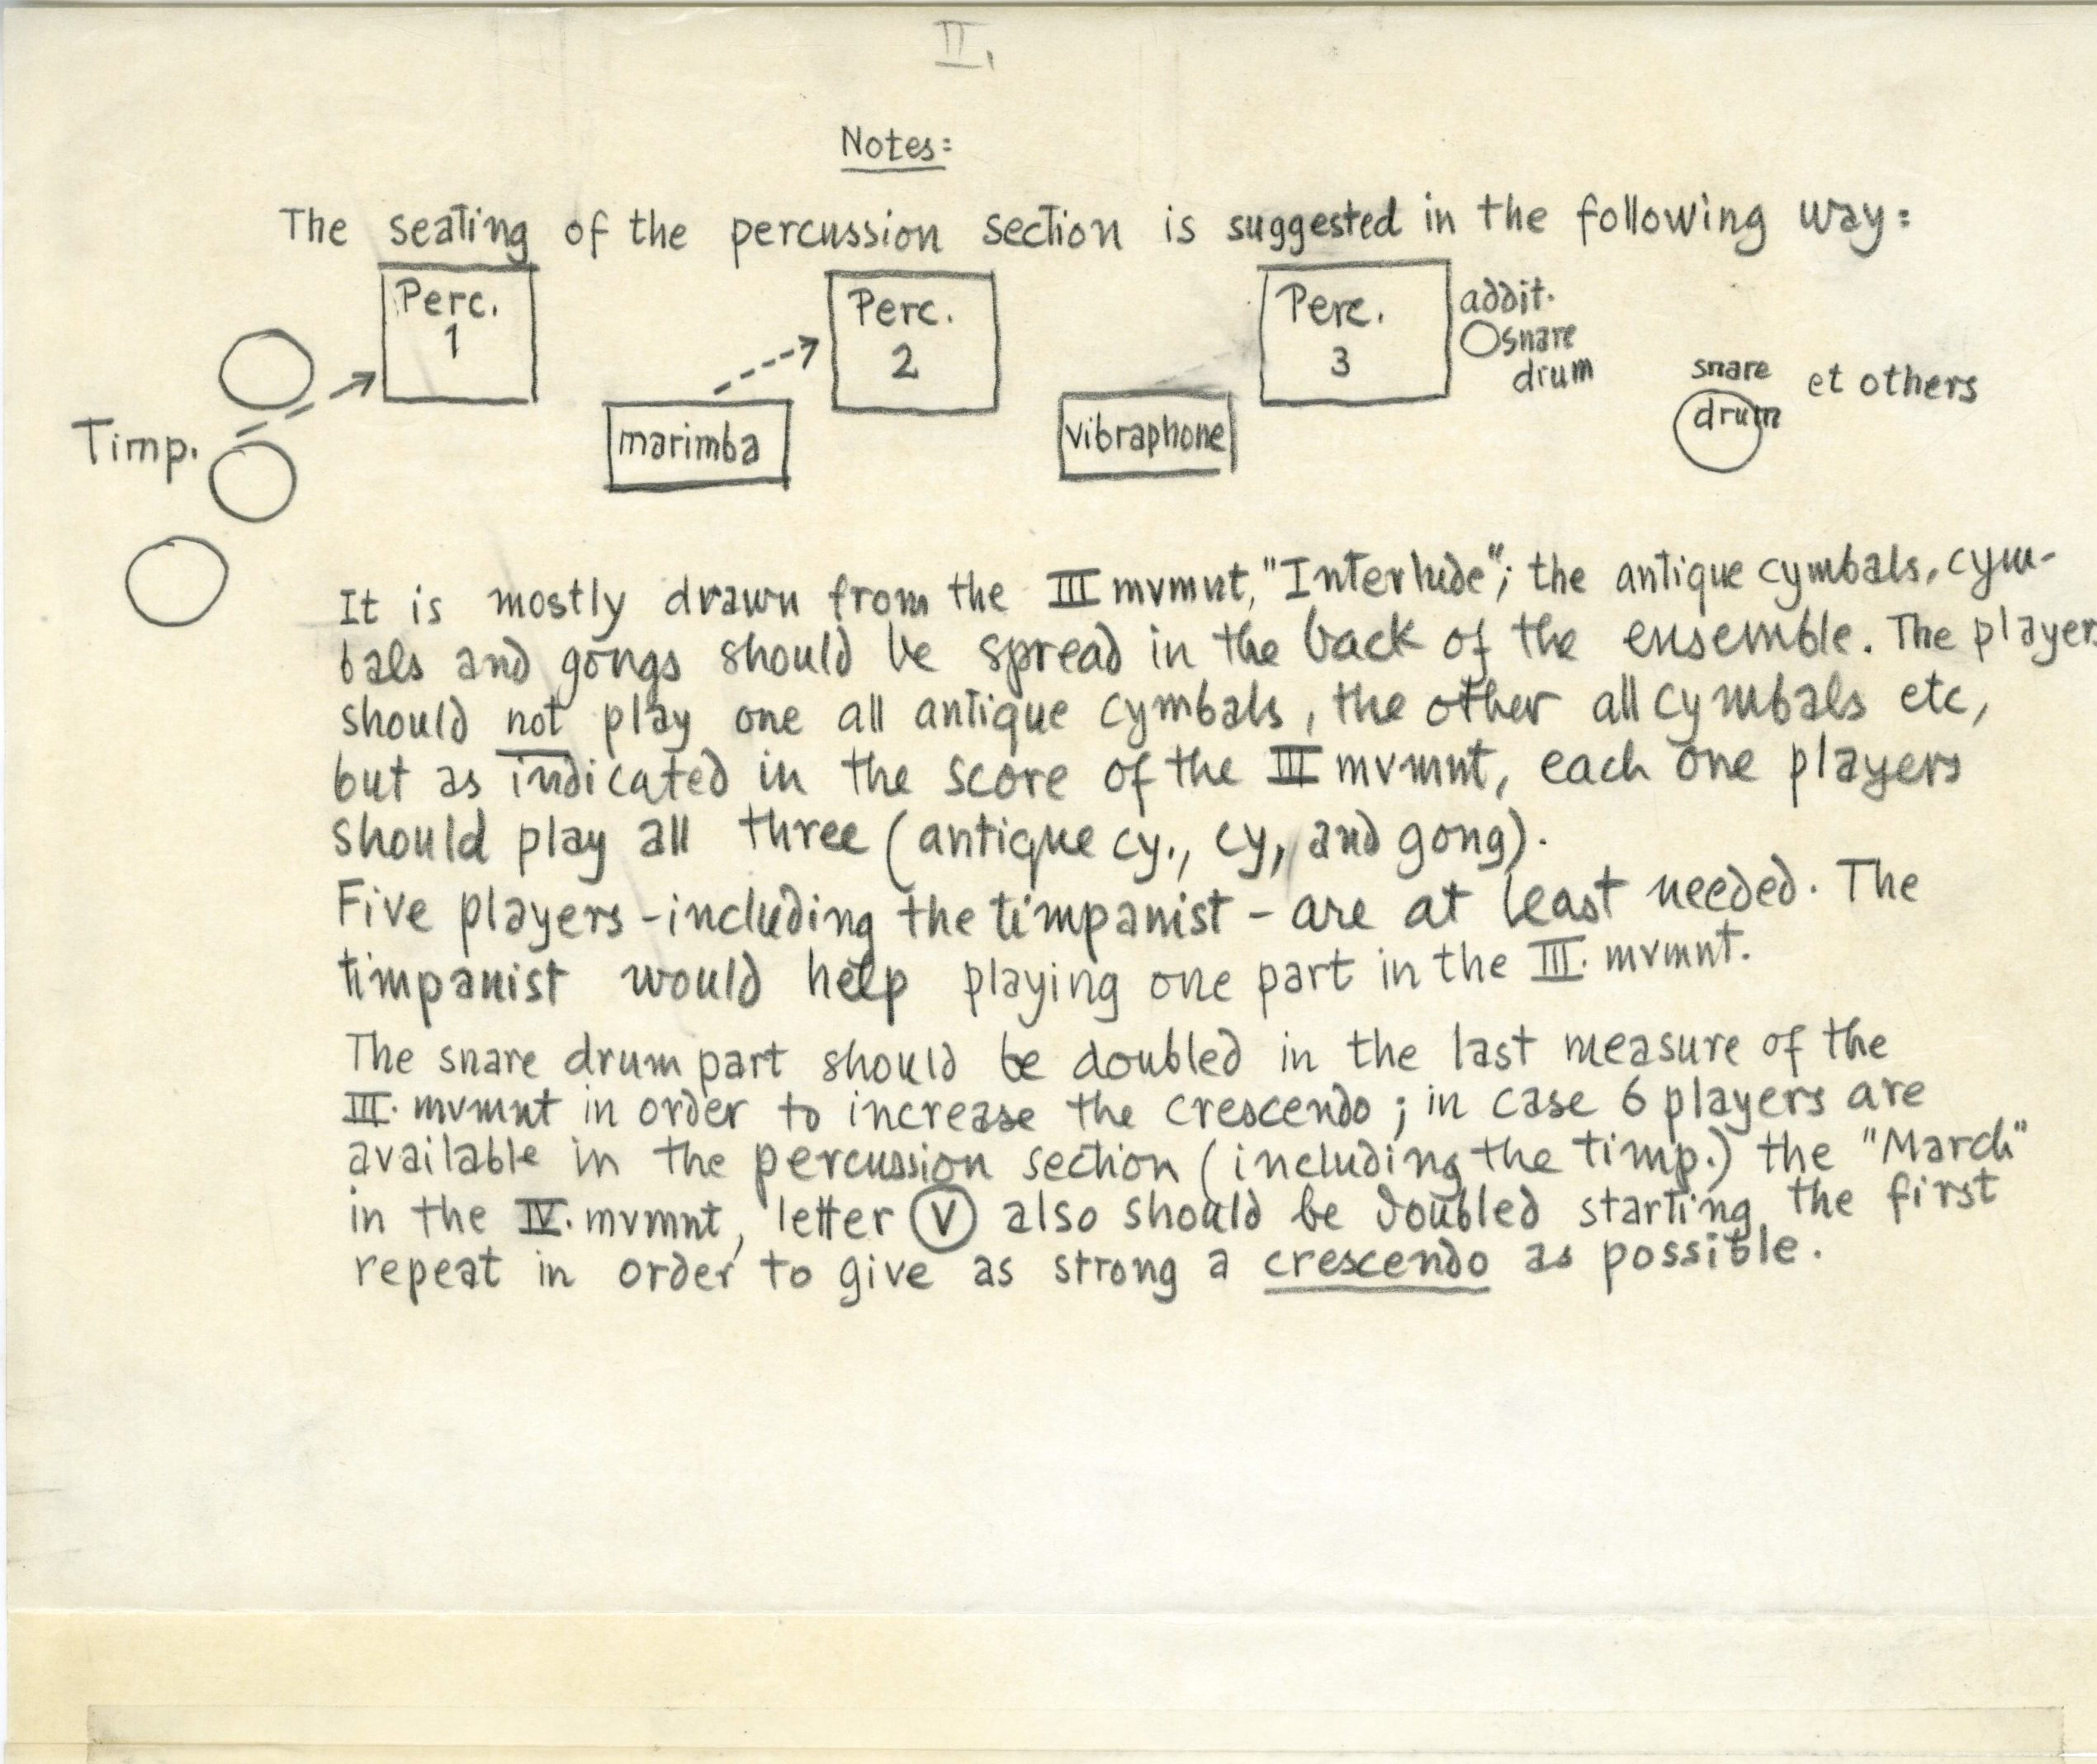 II.
Notes:
The seating of the percussion section is suggested in the following way:
Perc.
1
Perc.
2
Perc.
3
addit.
snare
drum
snare
drum
et others
Timp.
marimba
vibraphone
It is mostly drawn from the III mvmnt, "Interlude"; the antique cymbals, cym-
bals and gongs should be spread in the back of the ensemble. The players
should not play one all antique cymbals, the other all cymbals etc,
but as indicated in the score of the III mvmnt, each one players
should play all three (antique cy., cy, and gong).
Five players - including the timpanist - are at least needed. The
timpanist would help playing one part in the III. mvmnt.
The snare drum part should be doubled in the last measure of the
III. mvmnt in order to increase the crescendo; in case 6 players are
available in the percussion section (including the timp.) the "March"
in the IV. mvmnt, letter V also should be doubled starting the first
repeat in order to give as strong a crescendo as possible.